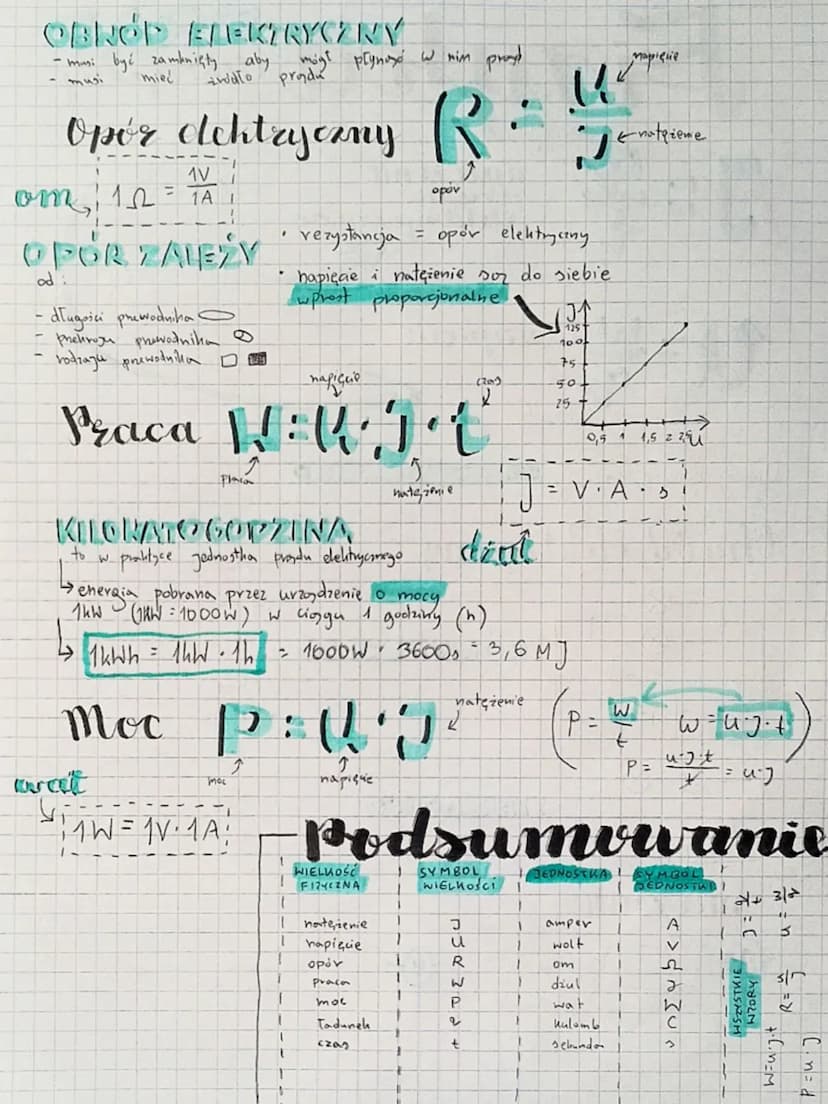 OBWÓD ELEKTRYCZNY
- musi być zamknięty aby mógł płynąć w nim prąd
- musi mieć źródło prądu
Opór elektryczny R = U/J
napięcie
natężenie
opór
om
1Ω = 1V/1A
OPÓR ZALEŻY
od:
- długości przewodnika
- przekroju przewodnika
- rodzaju przewodnika
• rezystancja = opór elektryczny
• napięcie i natężenie są do siebie
wprost proporcjonalne
J
125
100
75
50
25
0,5 1 1,5 2 2,5 U
Praca W = U · J · t
napięcie
czas
praca
natężenie
J = V · A · s
dżul
KILOWATOGODZINA
to w praktyce jednostka prądu elektrycznego
energia pobrana przez urządzenie o mocy
1kW (1kW = 1000W) w ciągu 1 godziny (h)
1kWh = 1kW · 1h = 1000W · 3600s = 3,6 MJ
Moc P = U · J
natężenie
moc
napięcie
(P = W/t W = U·J·t)
P = U·J·t/t = U·J
wat
1W = 1V · 1A
Podsumowanie
WIELKOŚĆ FIZYCZNA SYMBOL WIELKOŚCI JEDNOSTKA SYMBOL JEDNOSTKI
natężenie J amper A
napięcie U wolt V
opór R om Ω
praca W dżul J
moc P wat W
ładunek q kulomb C
czas t sekunda s
WSZYSTKIE WZORY
J = q/t
U = W/q
R = U/J
W = U·J·t
P = U·J